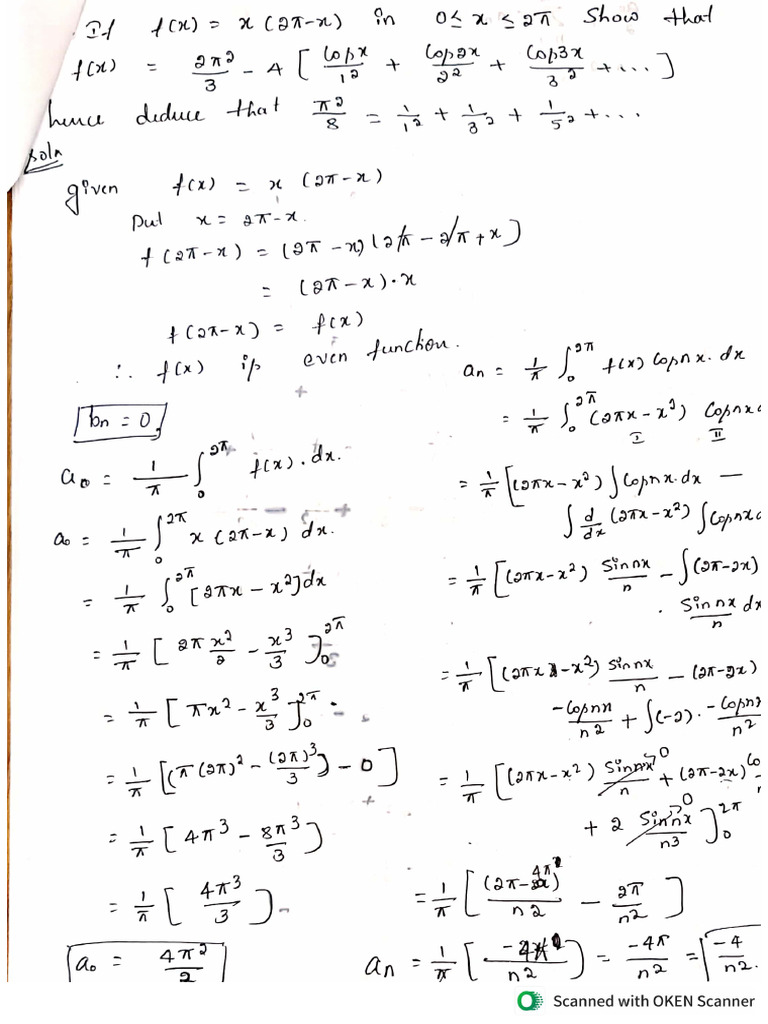 . If f(x) = x (2π-x) in 0 ≤ x ≤ 2π Show that
f(x) = 2π²/3 - 4 [ Cosx/1² + Cos2x/2² + Cos3x/3² + ... ]
hence deduce that π²/8 = 1/1² + 1/3² + 1/5² + ...
Soln
given f(x) = x (2π-x)
Put x = 2π-x.
f(2π-x) = (2π-x) (2π - 2π + x)
= (2π-x)·x
f(2π-x) = f(x)
∴ f(x) is even function.
bn = 0,
a0 = 1/π ∫₀^2π f(x)·dx.
a0 = 1/π ∫₀^2π x (2π-x) dx.
= 1/π ∫₀^2π [2πx - x²]dx
= 1/π [ 2π x²/2 - x³/3 ]₀^2π
= 1/π [ πx² - x³/3 ]₀^2π
= 1/π [(π(2π)² - (2π)³/3) - 0]
= 1/π [ 4π³ - 8π³/3 ]
= 1/π [ 4π³/3 ]
a0 = 4π²/2
an = 1/π ∫₀^2π f(x) Cosnx. dx
= 1/π ∫₀^2π (2πx - x²) Cosnx
I II
= 1/π [(2πx - x²) ∫Cosnx.dx -
∫ d/dx (2πx - x²) ∫Cosnx
= 1/π [(2πx - x²) Sinnx/n - ∫(2π-2x)
. Sinnx/n dx
= 1/π [(2πx - x²) Sinnx/n - (2π-2x)
-Cosnx/n² + ∫(-2) · -Cosnx/n²
= 1/π [(2πx - x²) Sinnx/n →0 + (2π-2x)
+ 2 Sinnx/n³ →0 ]₀^2π
= 1/π [ (2π-4π)/n² - 2π/n² ]
an = 1/π [ /n² ] = -4π/n² = -4/n².
Scanned with OKEN Scanner